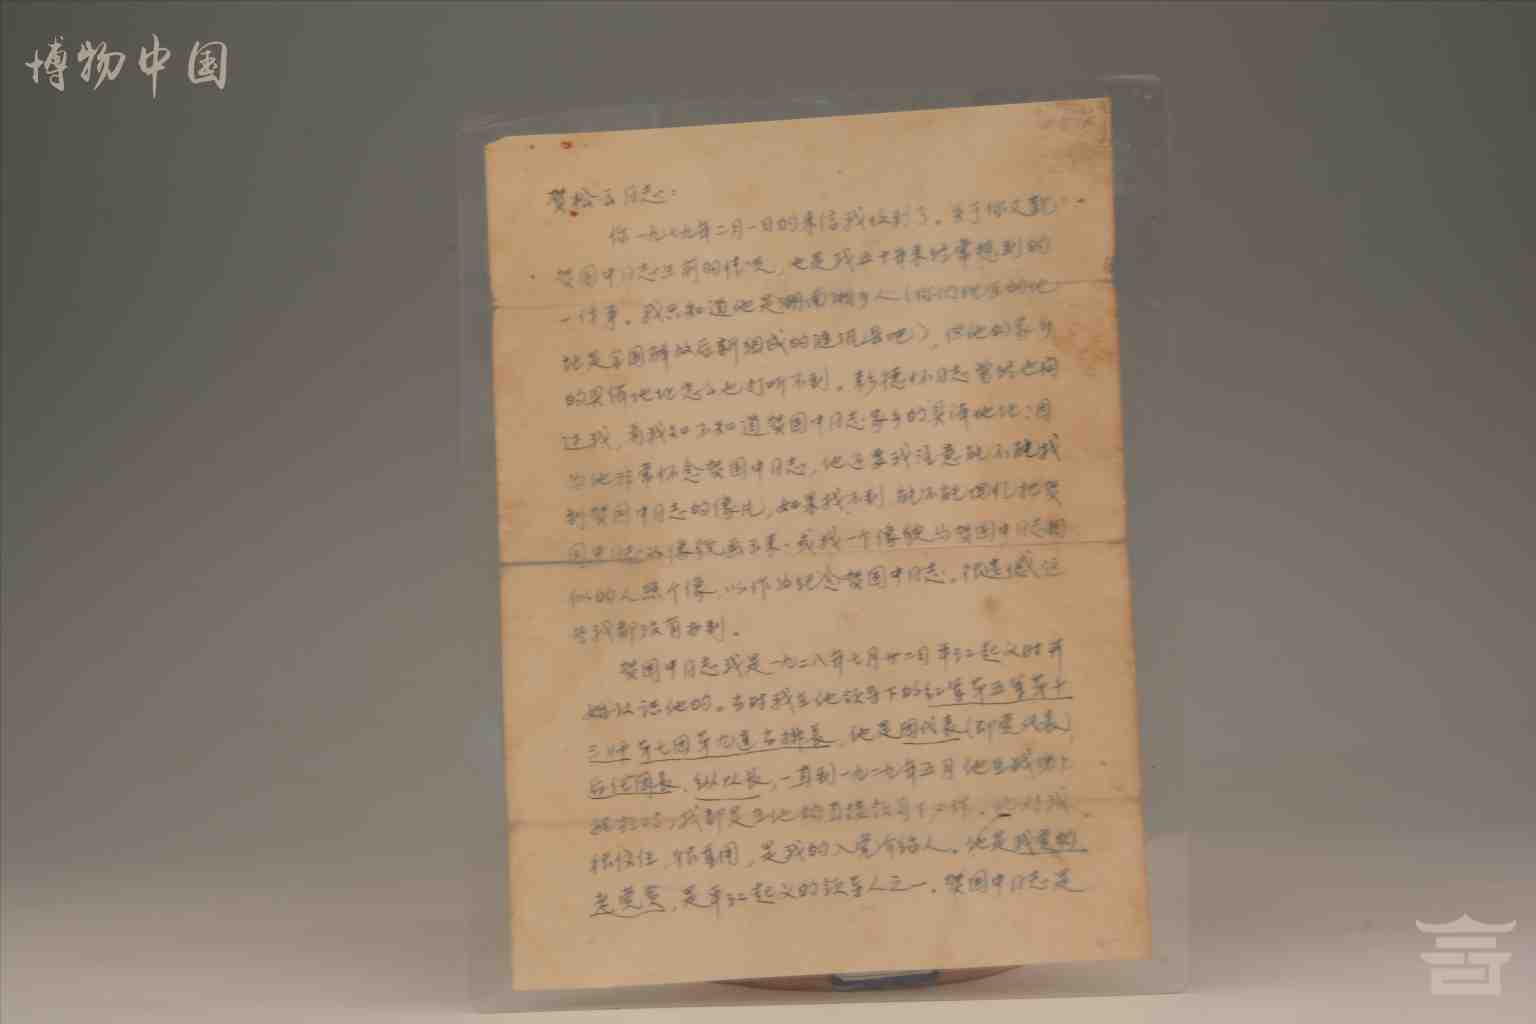 博物中国
贺松云同志：
你一九七九年二月一日的来信我收到了。关于你父亲
贺国中同志生前的情况，也是我五十年来经常想到的
一件事。我只知道他是湖南湘乡人（你们现在的地
址是全国解放后新组成的涟源县吧），但他的家乡
的具体地址怎么也打听不到。彭德怀同志曾经也问
过我，看我知不知道贺国中同志家乡的具体地址；因
为他非常怀念贺国中同志，他还要我注意能不能找
到贺国中同志的像片，如果找不到，能不能回忆把贺
国中同志的像貌画下来，或找一个像貌与贺国中同志相
似的人照个像，以作为纪念贺国中同志。很遗憾这
些我都没有办到。
贺国中同志我是一九二八年七月廿二日平江起义时开
始认识他的。当时我在他领导下的红军第五军第十
三师第七团第九连当排长，他是团代表（即党代表）
后任团长、纵队长，一直到一九二九年五月他在战场上
牺牲时，我都是在他的直接领导下工作。他对我
很信任，很重用，是我的入党介绍人。他是我党的
老党员，是平江起义的领导人之一。贺国中同志是